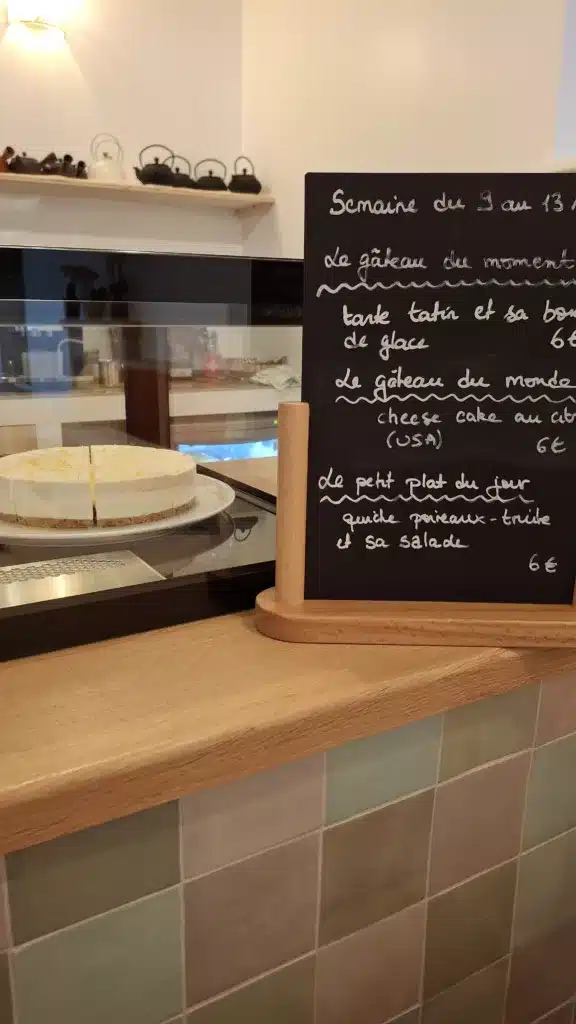 Semaine du 9 au 13
Le gâteau du moment
tarte tatin et sa
de glace 6€
Le gâteau du monde
cheese cake au
(USA) 6€
Le petit plat du jour
quiche poireaux-truite
et sa salade
6€